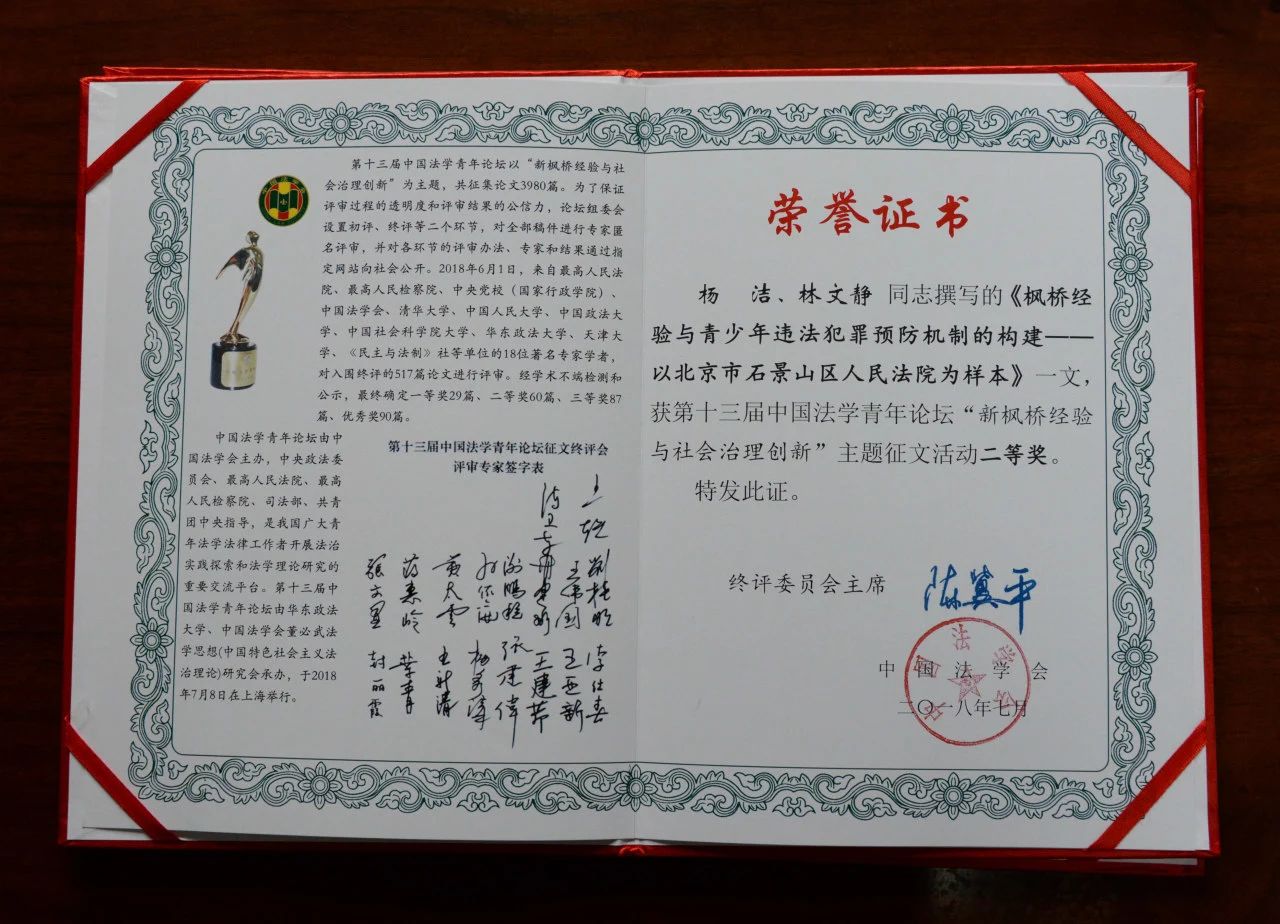 第十三届中国法学青年论坛以“新枫桥经验与社
会治理创新”为主题，共征集论文3980篇。为了保证
评审过程的透明度和评审结果的公信力，论坛组委会
设置初评、终评等二个环节，对全部稿件进行专家匿
名评审，并对各环节的评审办法、专家和结果通过指
定网站向社会公开。2018年6月1日，来自最高人民法
院、最高人民检察院、中央党校（国家行政学院）、
中国法学会、清华大学、中国人民大学、中国政法大
学、中国社会科学院大学、华东政法大学、天津大
学、《民主与法制》社等单位的18位著名专家学者，
对入围终评的517篇论文进行评审。经学术不端检测和
公示，最终确定一等奖29篇、二等奖60篇、三等奖87
篇、优秀奖90篇。
中国法学青年论坛由中
国法学会主办，中央政法委
员会、最高人民法院、最高
人民检察院、司法部、共青
团中央指导，是我国广大青
年法学法律工作者开展法治
实践探索和法学理论研究的
重要交流平台。第十三届中
国法学青年论坛由华东政法
大学、中国法学会董必武法
学思想(中国特色社会主义法
治理论)研究会承办，于2018
年7月8日在上海举行。
第十三届中国法学青年论坛征文终评会
评审专家签字表
封丽霞
张建伟
王建芹
王亚新
李仕春
荣誉证书
杨 洁、林文静 同志撰写的《枫桥经
验与青少年违法犯罪预防机制的构建——
以北京市石景山区人民法院为样本》一文，
获第十三届中国法学青年论坛“新枫桥经验
与社会治理创新”主题征文活动二等奖。
特发此证。
终评委员会主席 陈冀平
中国法学会
二〇一八年七月